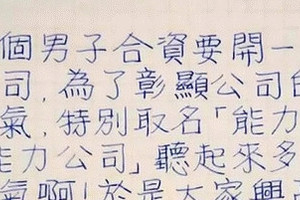 個男子合資要開一
司,為了彰顯公司的
氣,特別取名「能力
能力公司」聽起來多
氣啊」於是大家興